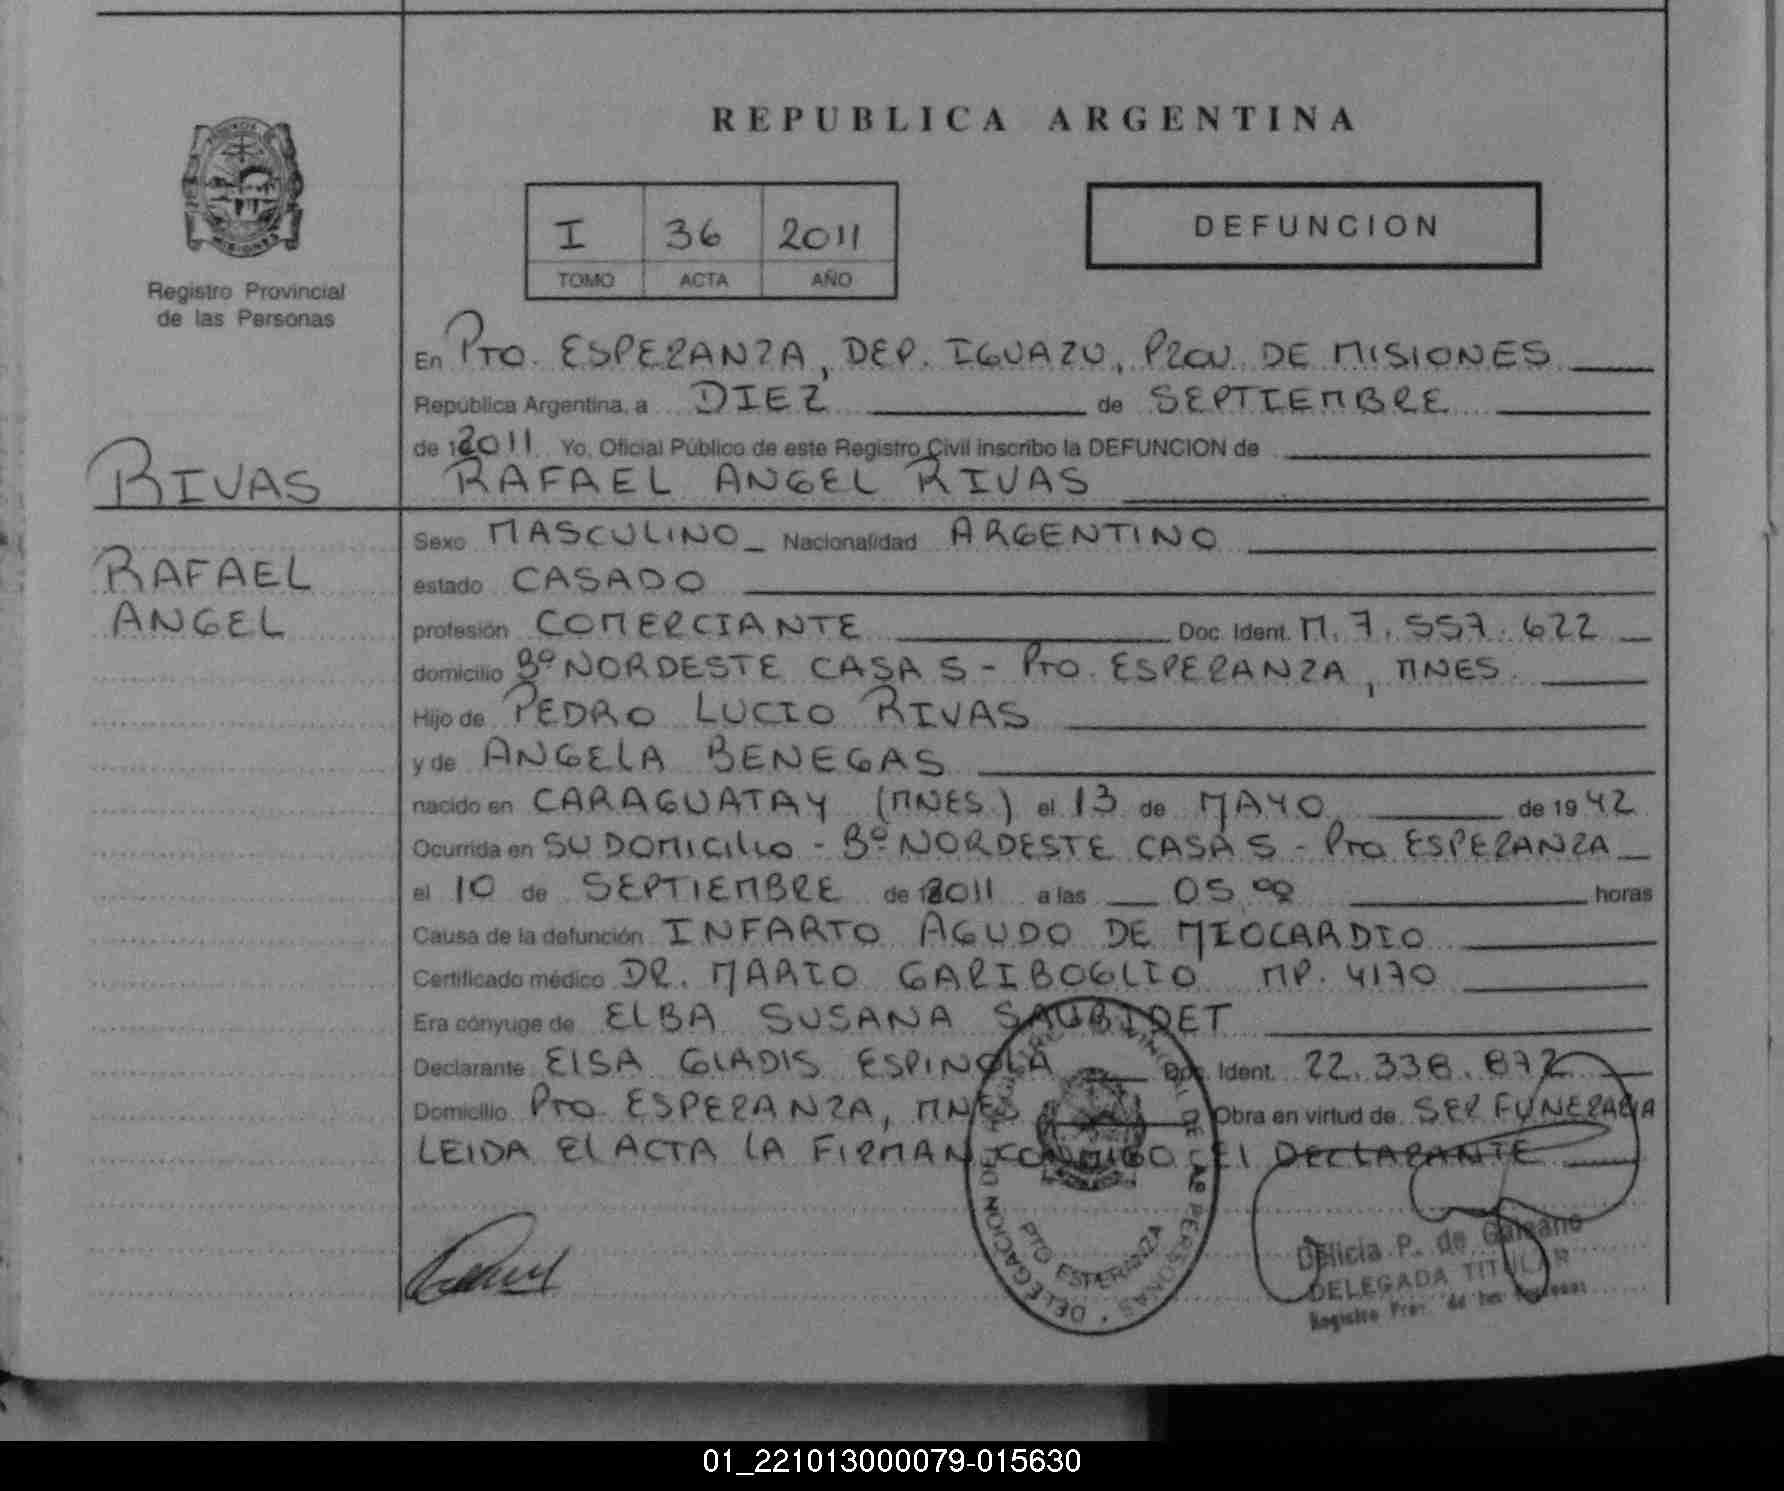 REPUBLICA ARGENTINA
MISIONES
Registro Provincial
de las Personas
I 36 2011
TOMO ACTA AÑO
DEFUNCION
En PTO. ESPERANZA, DEP. IGUAZU, PROV. DE MISIONES
República Argentina, a DIEZ de SEPTIEMBRE
de 2011 Yo, Oficial Público de este Registro Civil inscribo la DEFUNCION de
RIVAS
RAFAEL ANGEL RIVAS
RAFAEL
ANGEL
Sexo MASCULINO Nacionalidad ARGENTINO
estado CASADO
profesión COMERCIANTE Doc. Ident. M. 7.557.622
domicilio Bº NORDESTE CASA 5 - PTO. ESPERANZA, MNES.
Hijo de PEDRO LUCIO RIVAS
y de ANGELA BENEGAS
nacido en CARAGUATAY (MNES.) el 13 de MAYO de 1942
Ocurrida en SU DOMICILIO - Bº NORDESTE CASA 5 - PTO ESPERANZA
el 10 de SEPTIEMBRE de 2011 a las 05,00 horas
Causa de la defunción INFARTO AGUDO DE MIOCARDIO
Certificado médico DR. MARIO GARIBOGLIO MP. 4170
Era cónyuge de ELBA SUSANA SAUBIDET
Declarante ELSA GLADIS ESPINOLA Doc. Ident. 22.338.872
Domicilio PTO. ESPERANZA, MNES Obra en virtud de SER FUNERARIA
LEIDA EL ACTA LA FIRMAN CONMIGO EL DECLARANTE
DELEGACION DE PERSONAS
PTO ESPERANZA
Delicia P. de Galeano
DELEGADA TITULAR
Registro Prov. de las Personas
01_221013000079-015630